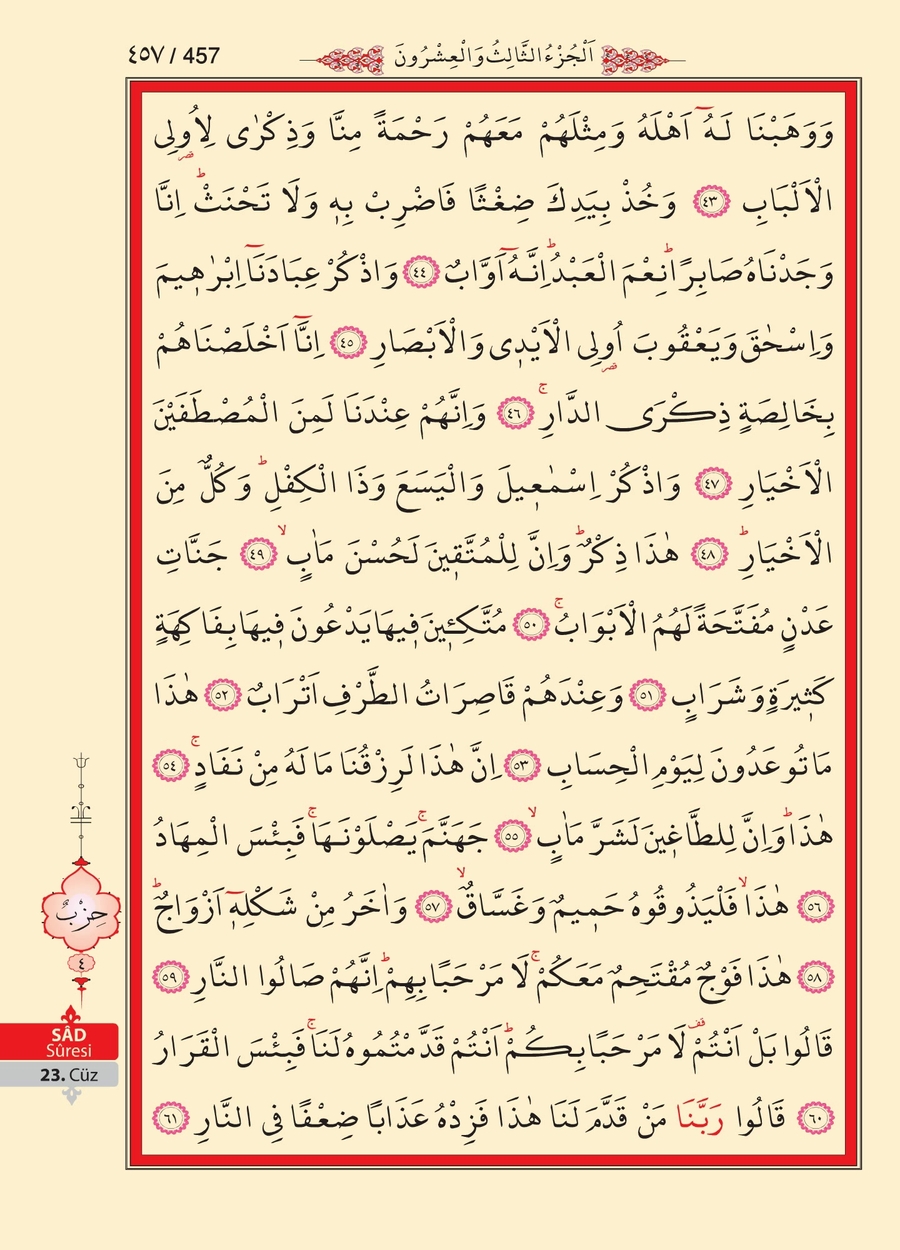 ٤٥٧ / 457
اَلْجُزْءُ الثَّالِثُ وَالْعِشْرُونَ
وَوَهَبْنَا لَهُٓ اَهْلَهُ وَمِثْلَهُمْ مَعَهُمْ رَحْمَةً مِنَّا وَذِكْرٰى لِاُولِى
الْاَلْبَابِ ﴿٤٣﴾ وَخُذْ بِيَدِكَ ضِغْثًا فَاضْرِبْ بِهٖ وَلَا تَحْنَثْۜ اِنَّا
وَجَدْنَاهُ صَابِرًاۜ نِعْمَ الْعَبْدُۜ اِنَّهُٓ اَوَّابٌ ﴿٤٤﴾ وَاذْكُرْ عِبَادَنَٓا اِبْرٰهٖيمَ
وَاِسْحٰقَ وَيَعْقُوبَ اُولِى الْاَيْدٖى وَالْاَبْصَارِ ﴿٤٥﴾ اِنَّٓا اَخْلَصْنَاهُمْ
بِخَالِصَةٍ ذِكْرَى الدَّارِۚ ﴿٤٦﴾ وَاِنَّهُمْ عِنْدَنَا لَمِنَ الْمُصْطَفَيْنَ
الْاَخْيَارِ ﴿٤٧﴾ وَاذْكُرْ اِسْمٰعٖيلَ وَالْيَسَعَ وَذَا الْكِفْلِۜ وَكُلٌّ مِنَ
الْاَخْيَارِۜ ﴿٤٨﴾ هٰذَا ذِكْرٌۜ وَاِنَّ لِلْمُتَّقٖينَ لَحُسْنَ مَاٰبٍۙ ﴿٤٩﴾ جَنَّاتِ
عَدْنٍ مُفَتَّحَةً لَهُمُ الْاَبْوَابُۚ ﴿٥٠﴾ مُتَّكِـٖٔينَ فٖيهَا يَدْعُونَ فٖيهَا بِفَاكِهَةٍ
كَثٖيرَةٍ وَشَرَابٍ ﴿٥١﴾ وَعِنْدَهُمْ قَاصِرَاتُ الطَّرْفِ اَتْرَابٌ ﴿٥٢﴾ هٰذَا
مَا تُوعَدُونَ لِيَوْمِ الْحِسَابِ ﴿٥٣﴾ اِنَّ هٰذَا لَرِزْقُنَا مَا لَهُ مِنْ نَفَادٍۚ ﴿٥٤﴾
هٰذَاۜ وَاِنَّ لِلطَّاغٖينَ لَشَرَّ مَاٰبٍۙ ﴿٥٥﴾ جَهَنَّمَۚ يَصْلَوْنَهَاۚ فَبِئْسَ الْمِهَادُ
﴿٥٦﴾ هٰذَاۙ فَلْيَذُوقُوهُ حَمٖيمٌ وَغَسَّاقٌۙ ﴿٥٧﴾ وَاٰخَرُ مِنْ شَكْلِهٖٓ اَزْوَاجٌۜ
﴿٥٨﴾ هٰذَا فَوْجٌ مُقْتَحِمٌ مَعَكُمْۚ لَا مَرْحَبًا بِهِمْۜ اِنَّهُمْ صَالُوا النَّارِ ﴿٥٩﴾
قَالُوا بَلْ اَنْتُمْ۠ لَا مَرْحَبًا بِكُمْۜ اَنْتُمْ قَدَّمْتُمُوهُ لَنَاۚ فَبِئْسَ الْقَرَارُ
﴿٦٠﴾ قَالُوا رَبَّنَا مَنْ قَدَّمَ لَنَا هٰذَا فَزِدْهُ عَذَابًا ضِعْفًا فِى النَّارِ ﴿٦١﴾
حِزْبٌ
٤
SÂD
Sûresi
23. Cüz